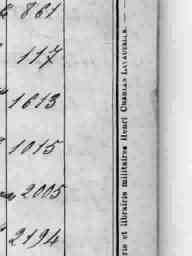 861
117
1613
1015
2005
2194
et librairie militaires Henri CHARLES-LAVAUZELLE. —